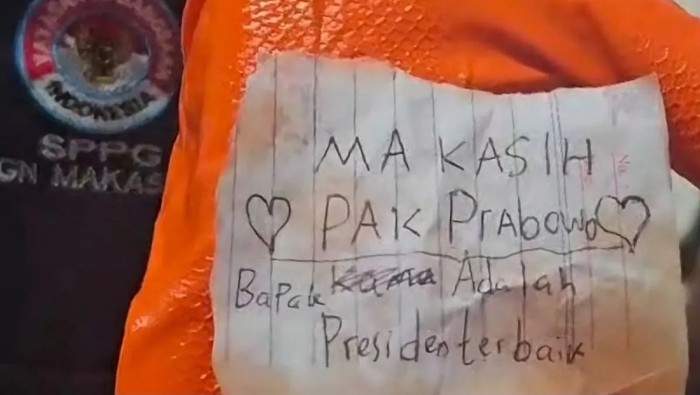 INDONESIA
SPPG
GN MAKAS
MAKASIH
PAK PrAbowo
Bapak Adalah
Presiden terbaik